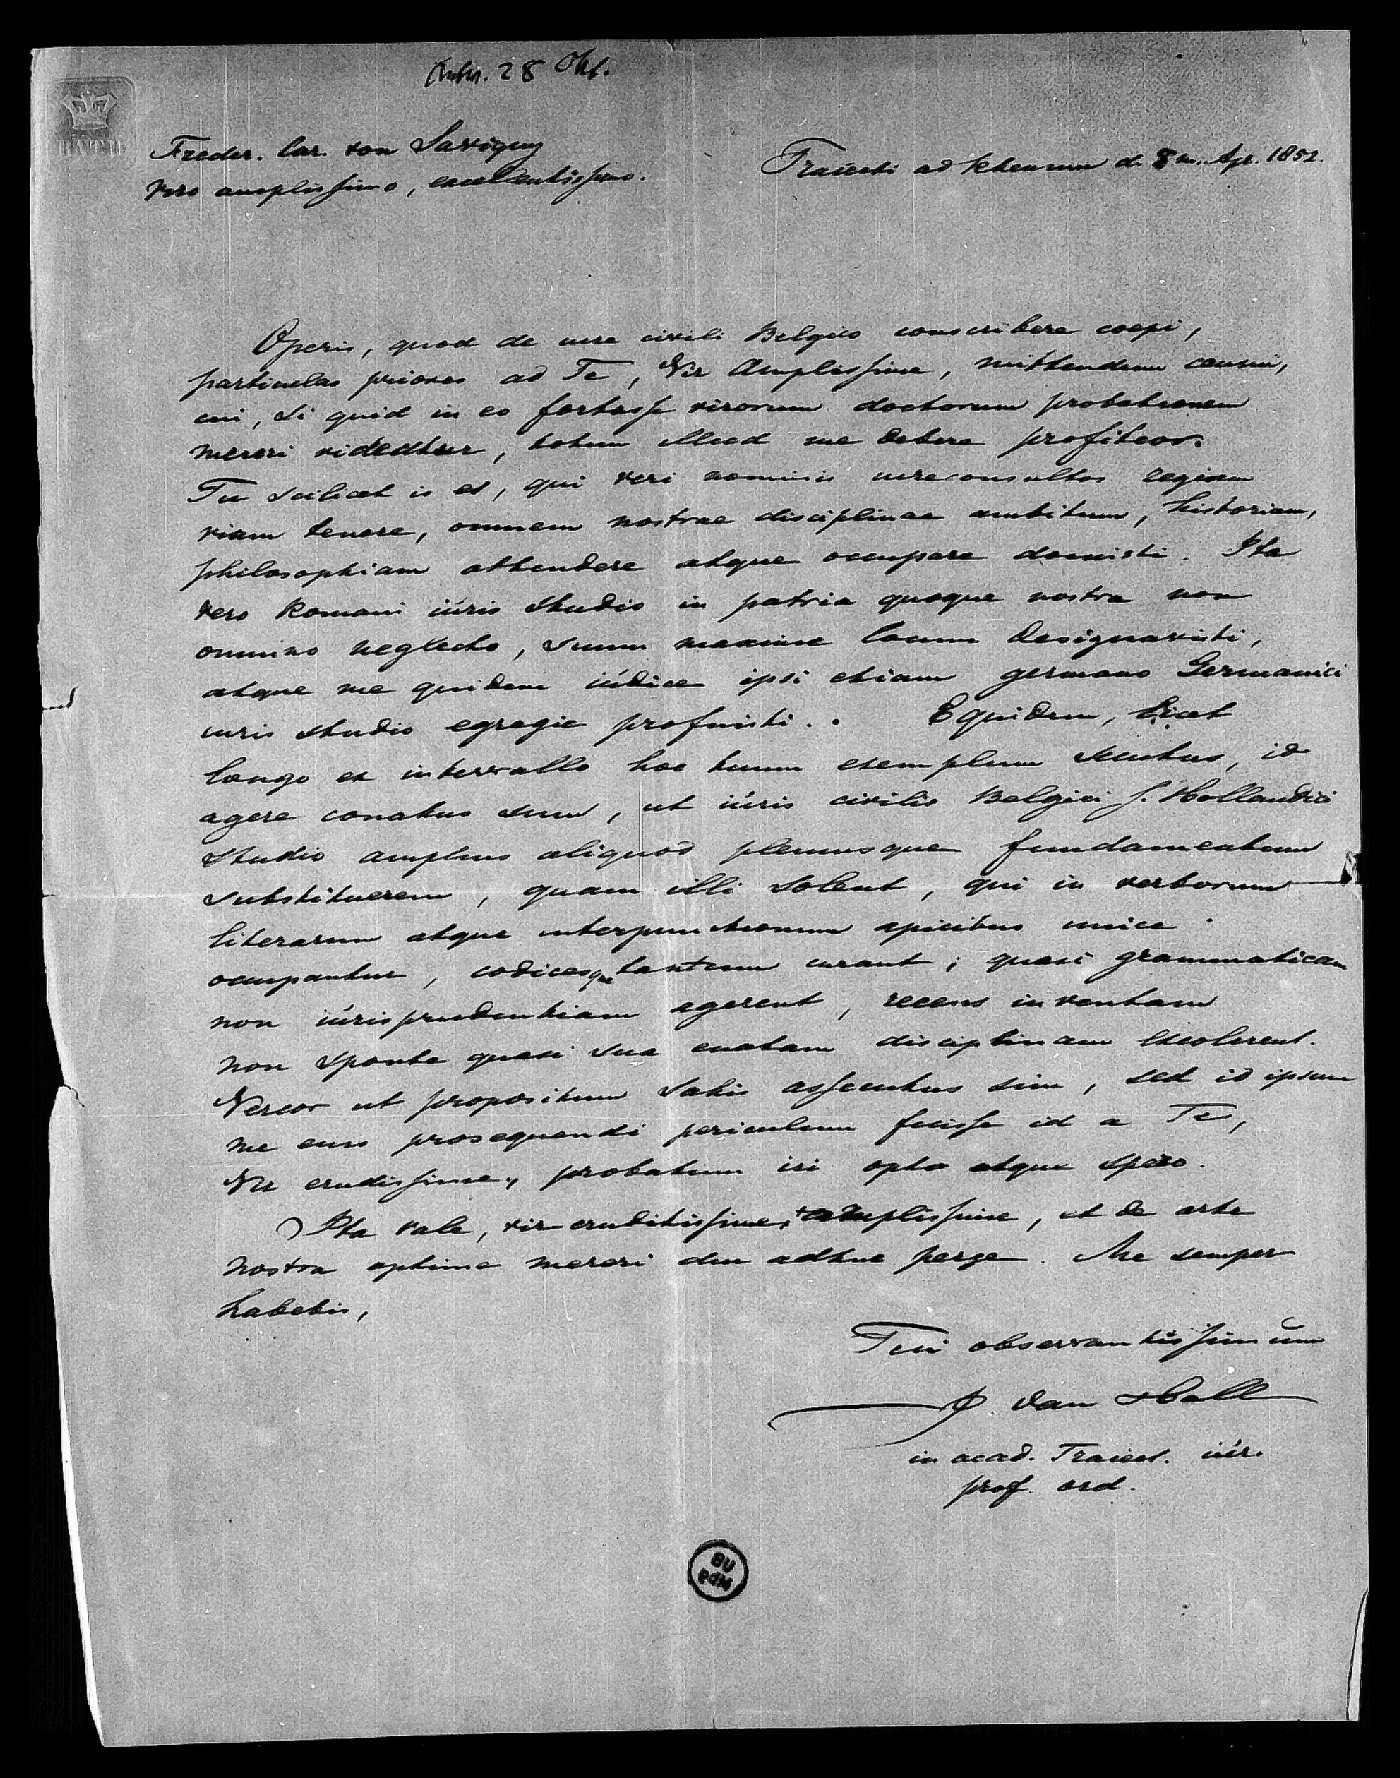 Antw. 28 Okt.
Freder. Car. von Savigny
viro amplissimo, excellentissimo.
Traiecti ad Rhenum d. 8 m. Apr. 1851.
Operis, quod de iure civili Belgico conscribere coepi,
particulas priores ad Te, Vir Amplissime, mittendam censui,
cui, si quid in eo fortasse virorum doctorum probationem
mereri videatur, totum illud me debere profiteor.
Tu scilicet is es, qui veri nominis iureconsultos regiam
viam tenere, omnem nostrae disciplinae ambitum, historiam,
philosophiam attendere atque occupare docuisti. Ita
vero Romani iúris studio in patria quoque nostra non
omnino neglecto, suum maxime locum designavisti,
atque me quidem iúdice ipsi etiam germano Germanici
iuris studio egregie profuisti. Equidem, licet
longo ex intervallo hoc tuum exemplum secutus, id
agere conatus sum, ut iúris civilis Belgici s. Hollandici
studio amplius aliquod plenusque fundamentum
substituerem, quam illi solent, qui in verborum
literarum atque interpunctionum apicibus unice
occupantur, codicesque tantum curant; quasi grammaticam
non iúrisprudentiam agerent, recens inventam
non sponte quasi sua enatam disciplinam excolerent.
Vereor ut propositum satis assecutus sim, sed id ipsum
me eius prosequendi periculum fecisse id a Te,
Vir erudissime, probatum iri opto atque spero.
Ita vale, vir eruditissime, amplissime, et de arte
nostra optime mereri diu adhuc perge. Me semper
habebis,
Tui observantissimum
J van Hall
in acad. Traiect. iúr.
prof. ord.
UB
MBG